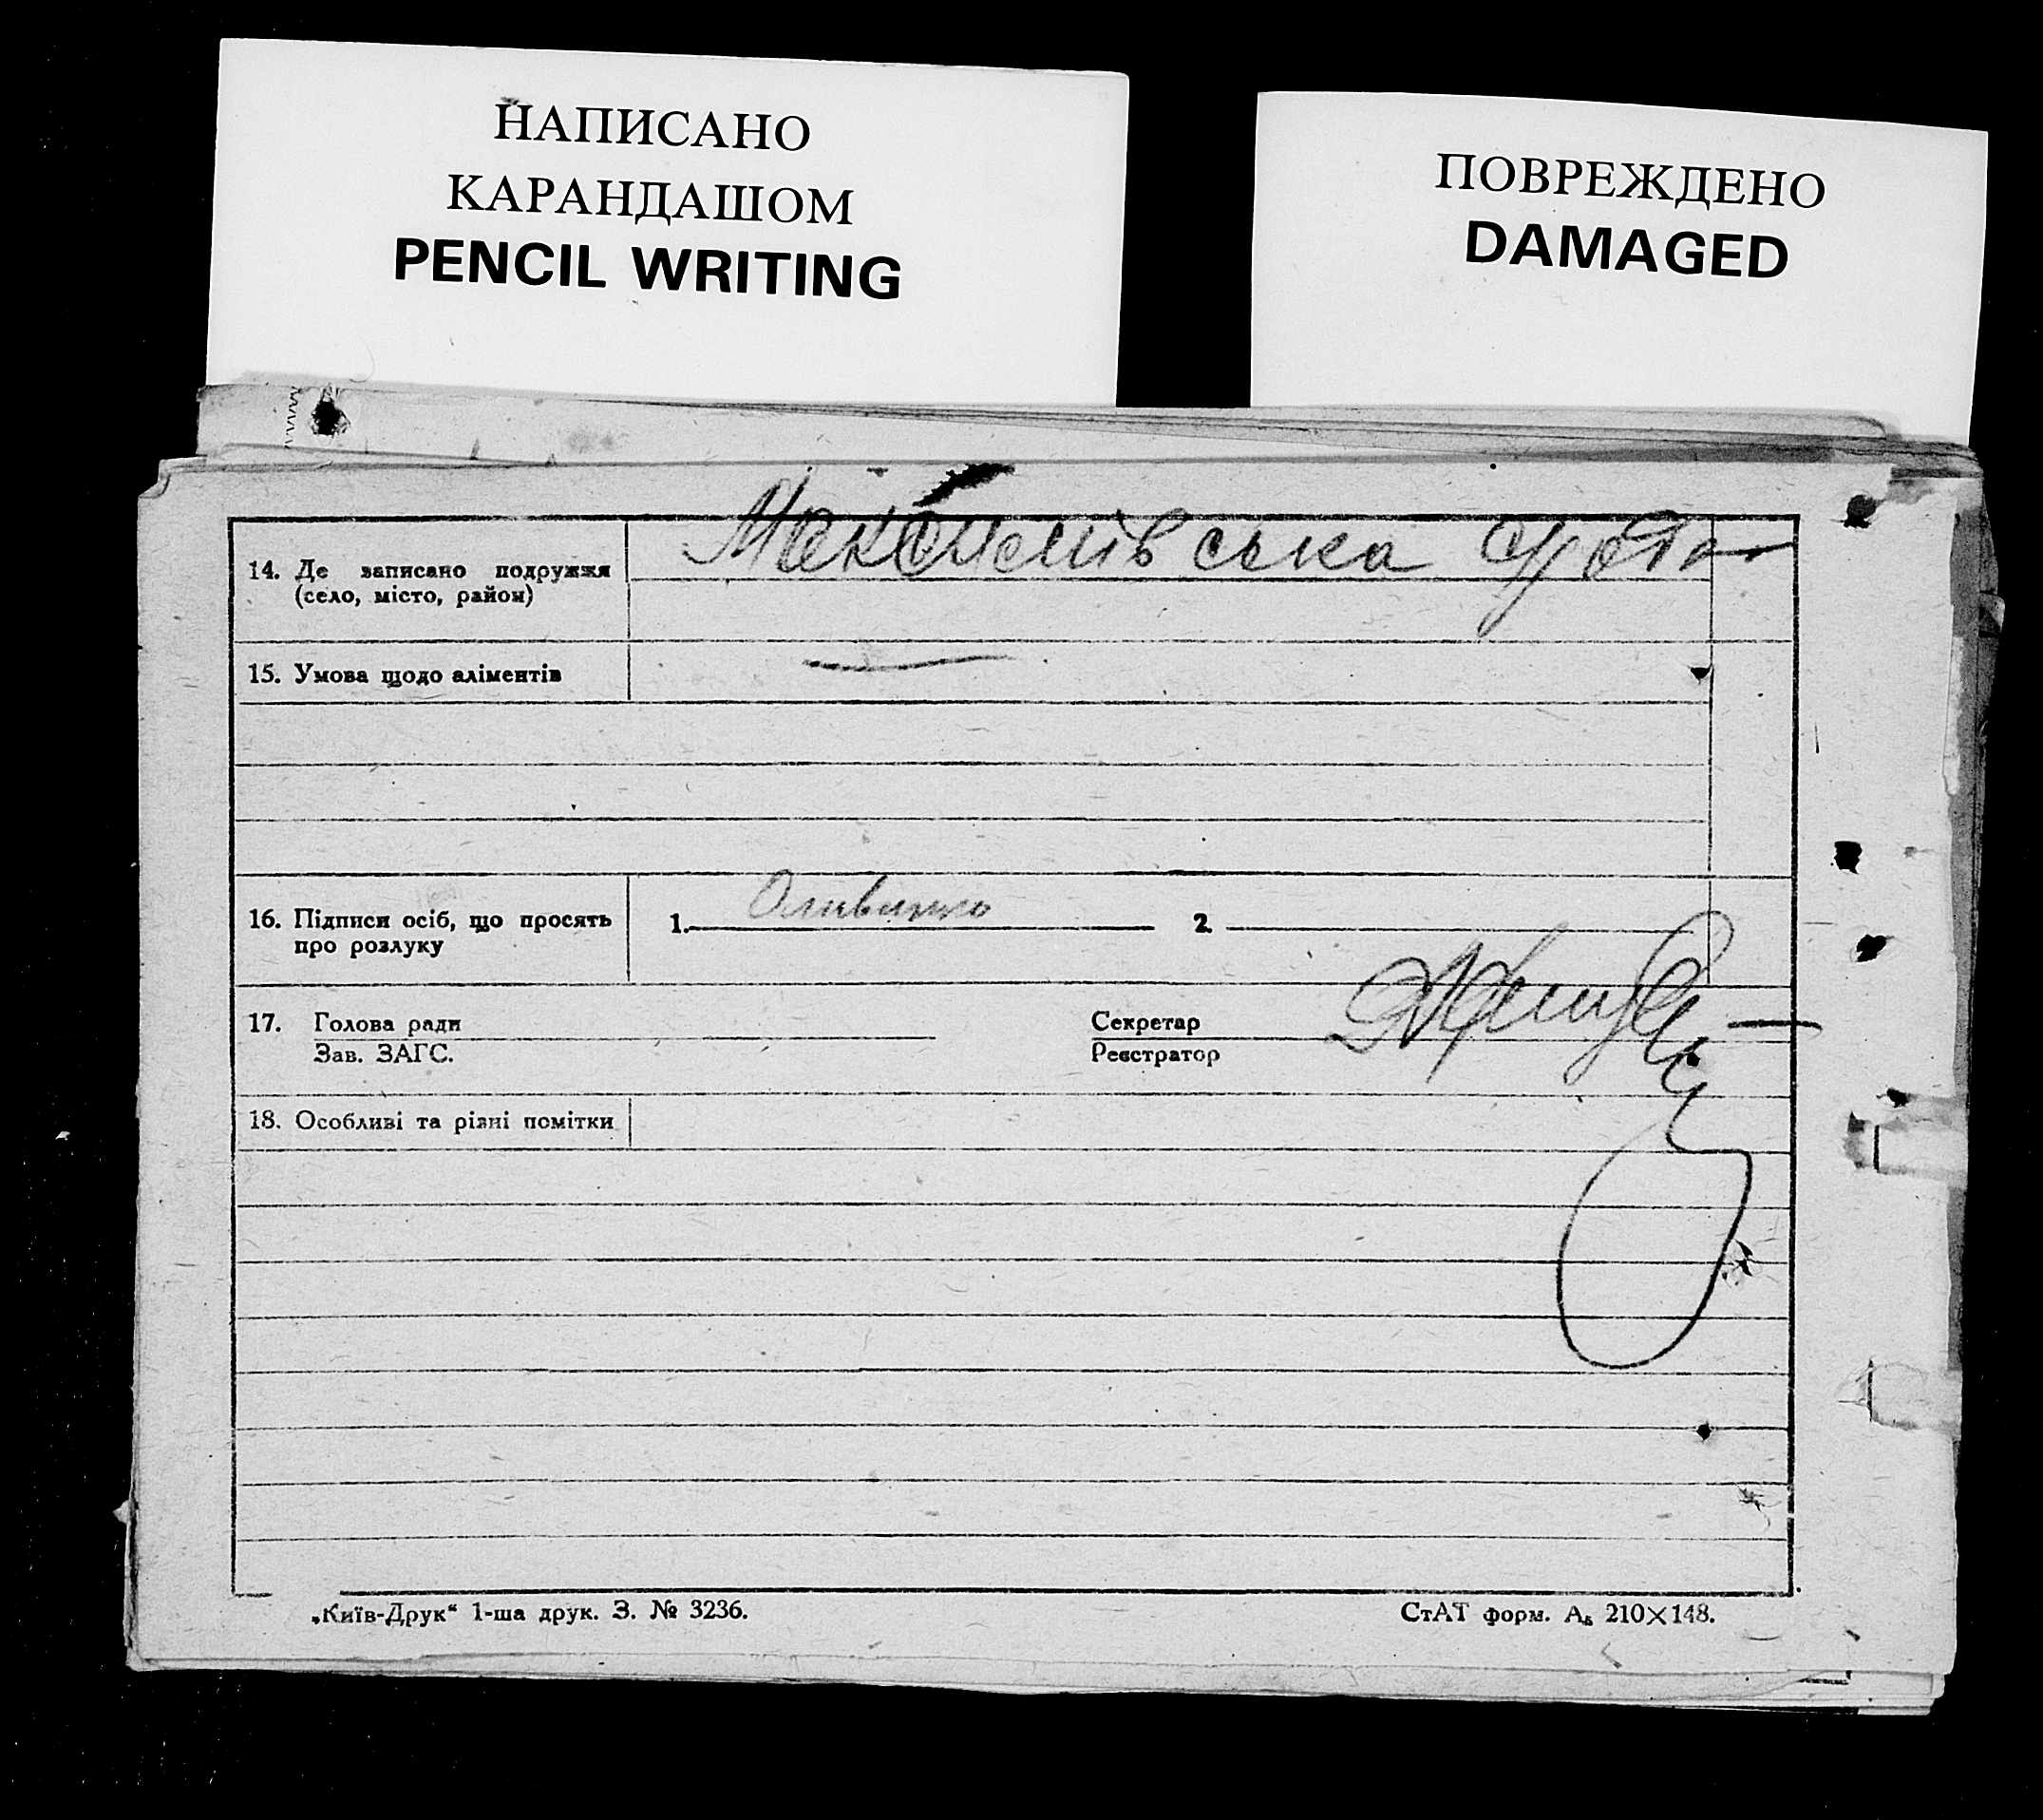 НАПИСАНО
КАРАНДАШОМ
PENCIL WRITING
ПОВРЕЖДЕНО
DAMAGED
14. Де записано подружжя
(село, місто, район)
15. Умова щодо аліментів
16. Підписи осіб, що просять
про розлуку
1.
2.
17. Голова ради
Зав. ЗАГС.
Секретар
Реєстратор
18. Особливі та різні помітки
„Київ-Друк“ 1-ша друк. З. № 3236.
СтАТ форм. А₅ 210×148.